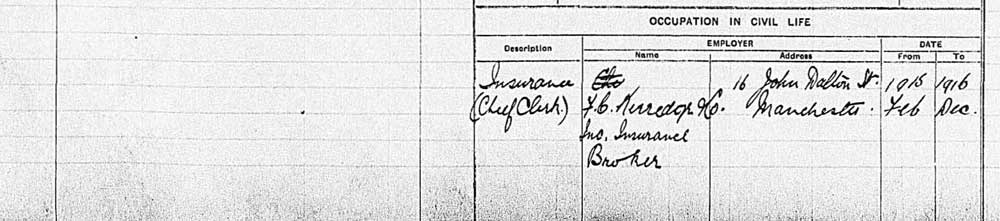 OCCUPATION IN CIVIL LIFE
Description EMPLOYER DATE
Name Address From To
Insurance 16 John Dalton St. 1915 1916
(Chief Clerk.) F.C. & Co. Manchester. Feb Dec.
Ins. Insurance
Broker